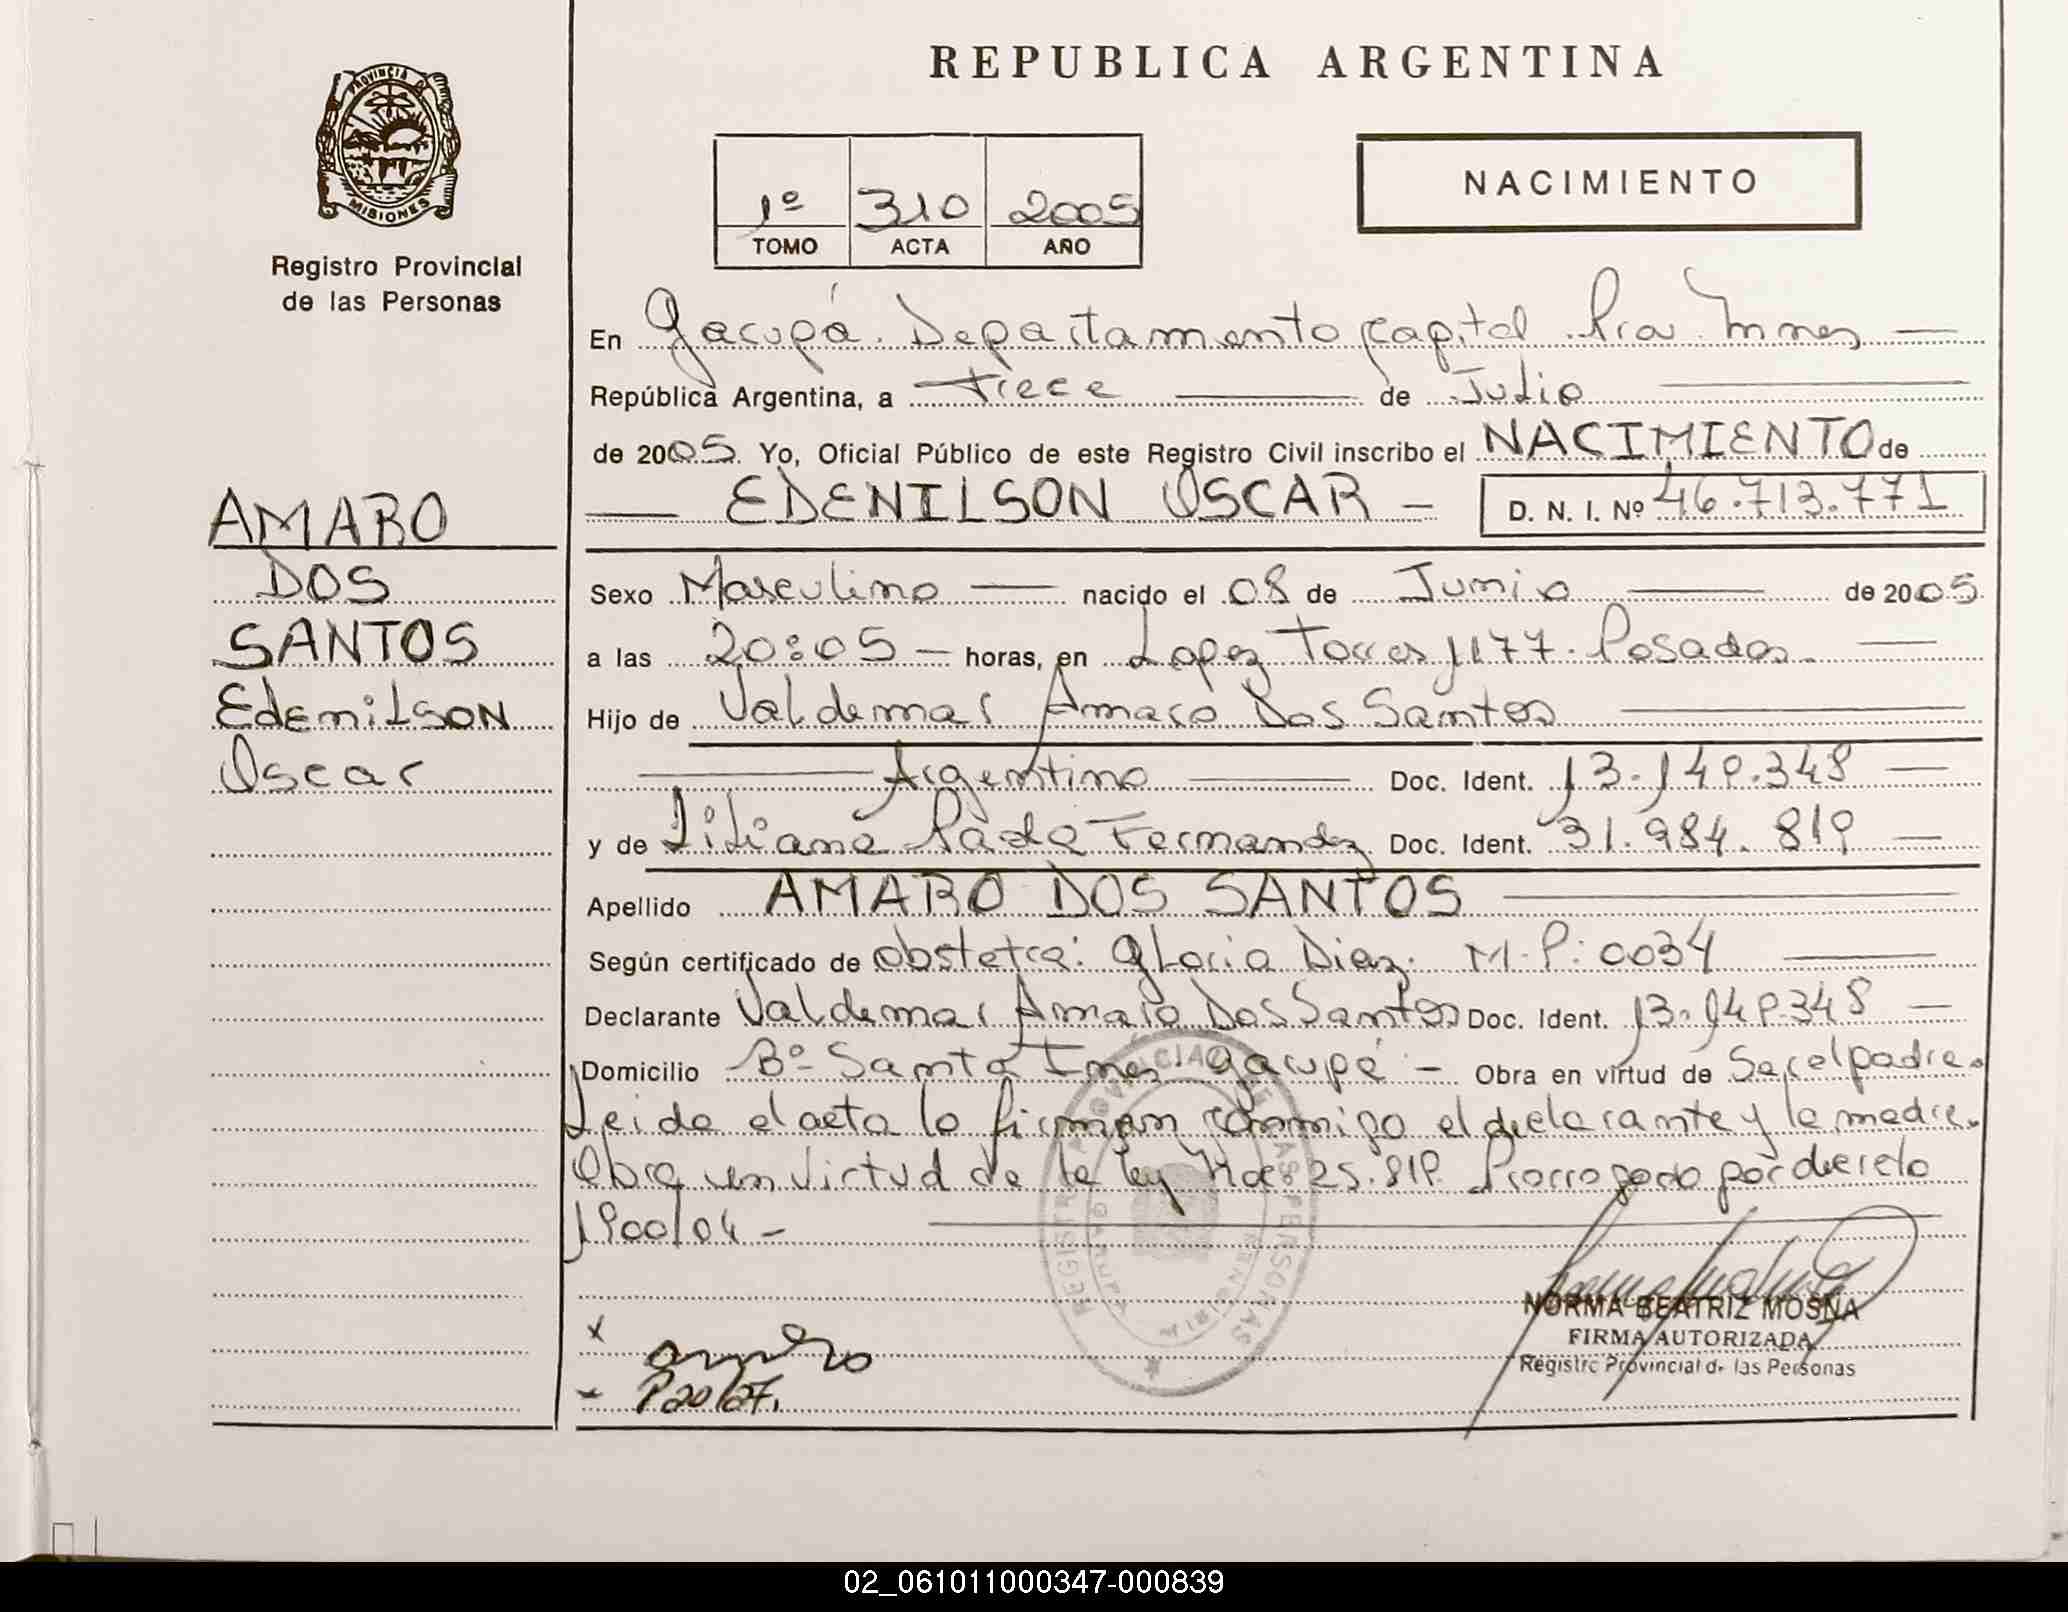 REPUBLICA ARGENTINA
PROVINCIA DE
MISIONES
Registro Provincial
de las Personas
1º 310 2005
TOMO ACTA AÑO
NACIMIENTO
En Garupá. Departamento Capital. Prov. Mnes
República Argentina, a trece de Julio
de 2005. Yo, Oficial Público de este Registro Civil inscribo el NACIMIENTO de
EDENILSON OSCAR - D. N. I. Nº 46.713.771
AMARO
DOS
SANTOS
Edenilson
Oscar
Sexo Masculino nacido el 08 de Junio de 2005.
a las 20:05 - horas, en Lopez Torres 1177. Posadas.
Hijo de Valdemar Amaro Dos Santos
Argentino Doc. Ident. 13.149.348
y de Liliana Fernandez Doc. Ident. 31.984.819
Apellido AMARO DOS SANTOS
Según certificado de obstetra: Gloria Diaz. M.P: 0034
Declarante Valdemar Amaro Dos Santos Doc. Ident. 13.149.348
Domicilio Bº Santa Inés. Garupá - Obra en virtud de Ser el padre.
Leida el acta la firman conmigo el declarante y la madre.
Obra en virtud de la ley Nro: 25.819. Prorrogado por decreto
1900/04 -
REGISTRO PROVINCIAL DE LAS PERSONAS
GARUPA
NORMA BEATRIZ MOSNA
FIRMA AUTORIZADA
Registro Provincial de las Personas
x
02_061011000347-000839